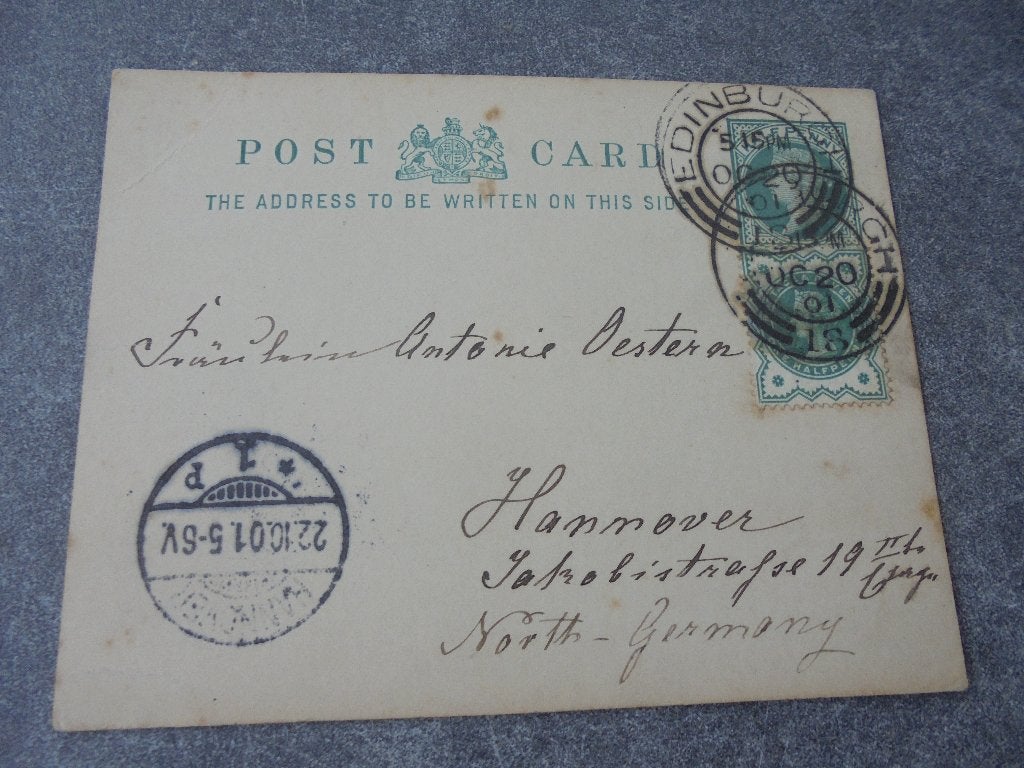 POST CARD
THE ADDRESS TO BE WRITTEN ON THIS SIDE
EDINBURGH
5.15 PM
OC 20
01
OC 20
01
18
HALFPE
Fräulein Antonie Oestern
Hannover
Jakobistraße 19 II
North-Germany
1 P
22.10.01.5-6V.
HANNOVER